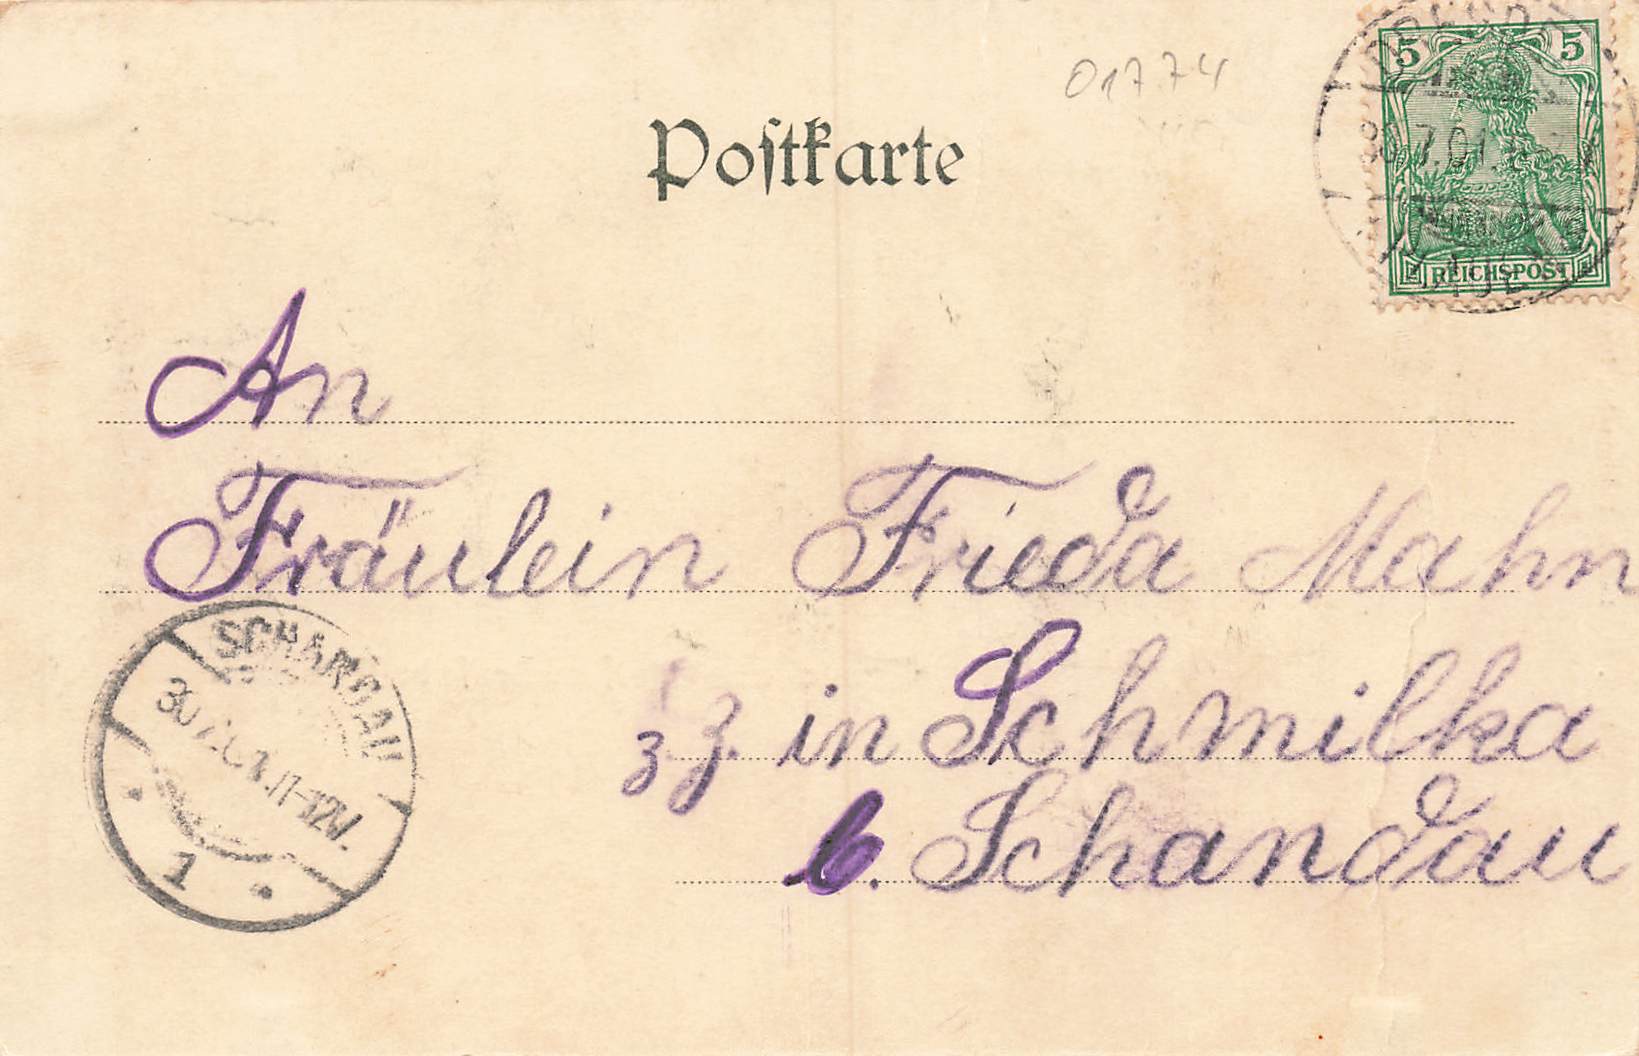 01774
Postkarte
5 5
7.01
REICHSPOST
An
Fräulein Frieda Mahn
z. Z. in Schmilka
b. Schandau
SCHANDAU
30 7. 01. 11-12V.
1